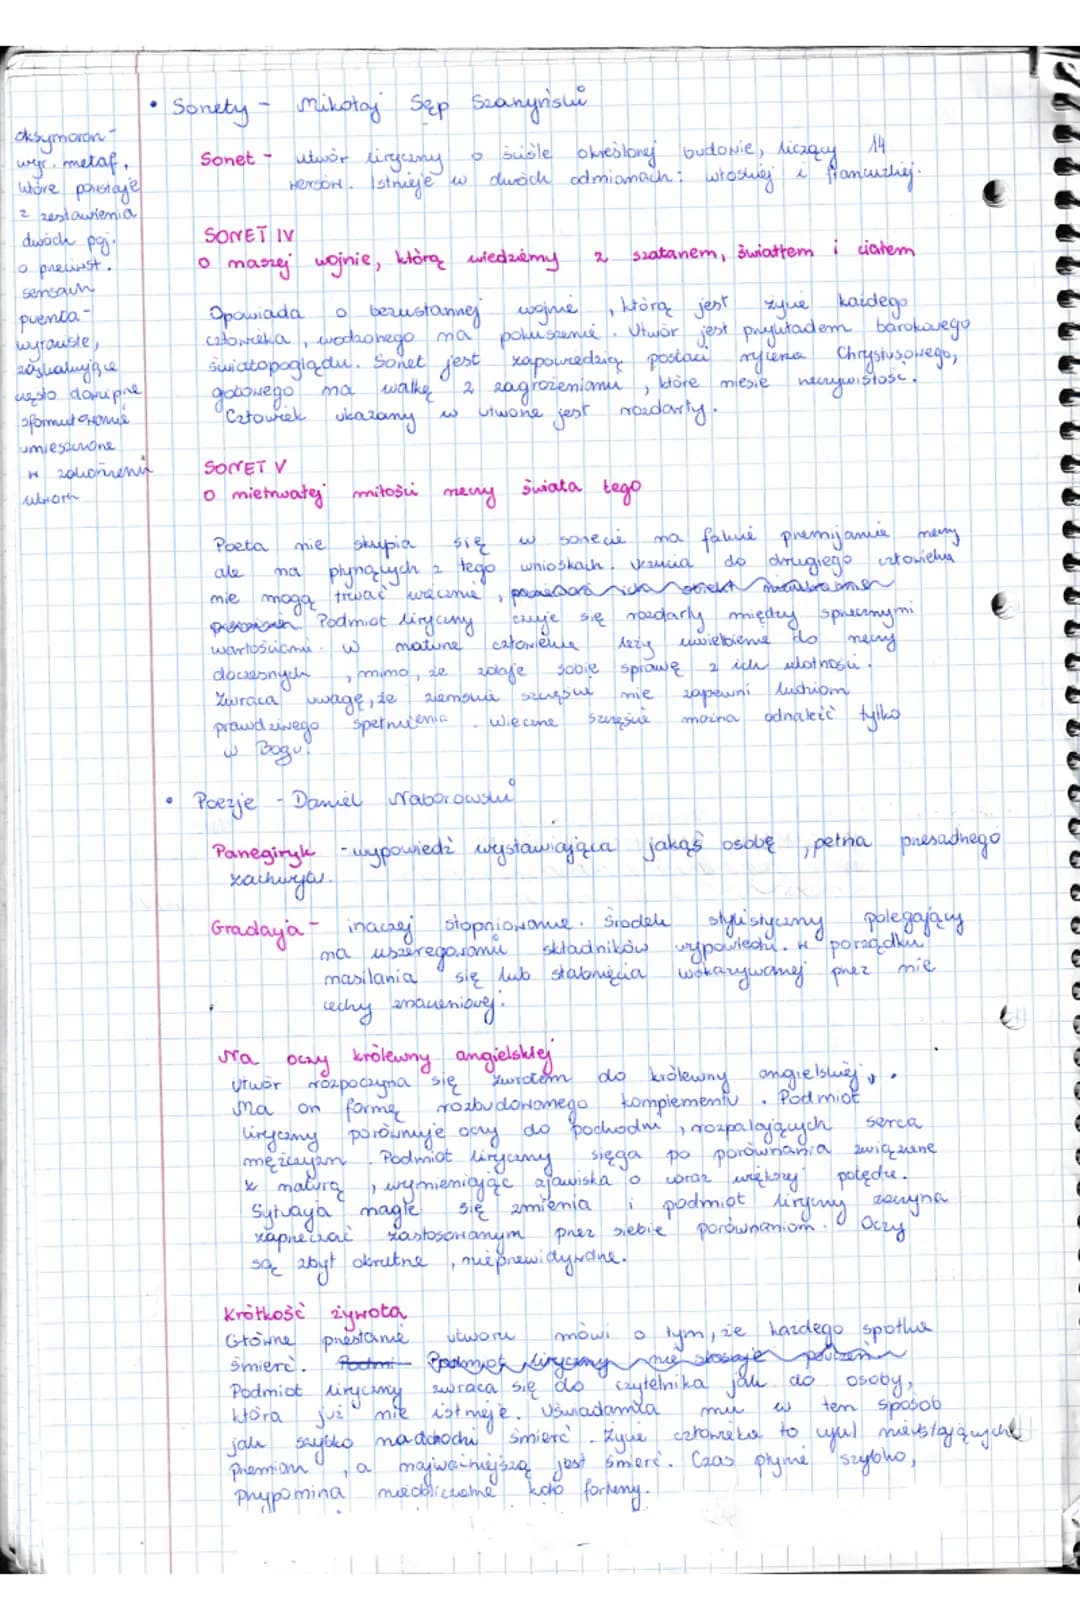 • Sonety - Mikołaj Sęp Szarzyński
Oksymoron -
wyr. metaf.
które powstaje
z zestawienia
dwóch poj.
o przeciwst.
sensach
puenta -
wyraziste,
zaskakujące
często dowcipne
sformułowanie
umieszczone
w zakończeniu
utworu
Sonet - utwór liryczny o ściśle określonej budowie, liczący 14
wersów. Istnieje w dwóch odmianach: włoskiej i francuskiej.
SONET IV
O naszej wojnie, którą wiedziemy z szatanem, światłem i ciałem
Opowiada o bezustannej wojnie, którą jest życie każdego
człowieka, wodzonego na pokuszenie. Utwór jest przykładem barokowego
światopoglądu. Sonet jest zapowiedzią postaci rycerza Chrystusowego,
gotowego na walkę z zagrożeniami, które niesie rzeczywistość.
Człowiek ukazany w utworze jest rozdarty.
SONET V
O nietrwałej miłości rzeczy świata tego
Poeta nie skupia się w sonecie na fakcie przemijania rzeczy
ale na płynących z tego wnioskach. Uczucia do drugiego człowieka
nie mogą trwać wiecznie,
Podmiot liryczny czuje się rozdarty między sprzecznymi
wartościami. W naturze człowieka leży uwielbienie do rzeczy
doczesnych, mimo, że zdaje sobie sprawę z ich ulotności.
Zwraca uwagę, że ziemskie szczęście nie zapewni ludziom
prawdziwego spełnienia. Wieczne szczęście można odnaleźć tylko
w Bogu.
• Poezje - Daniel Naborowski
Panegiryk - wypowiedź wystawiająca jakąś osobę, pełna przesadnego
zachwytu.
Gradacja - inaczej stopniowanie. Środek stylistyczny polegający
na uszeregowaniu składników wypowiedzi w porządku
nasilania się lub słabnięcia wskazywanej przez nie
cechy znaczeniowej.
Na oczy królewny angielskiej
Utwór rozpoczyna się zwrotem do królewny angielskiej.
Ma on formę rozbudowanego komplementu. Podmiot
liryczny porównuje oczy do pochodni, rozpalających serca
mężczyzn. Podmiot liryczny sięga po porównania związane
z naturą, wymieniając zjawiska o coraz większej potędze.
Sytuacja nagle się zmienia i podmiot liryczny zaczyna
zaprzeczać zastosowanym przez siebie porównaniom. Oczy
są zbyt okrutne, nieprzewidywalne.
Krótkość żywota
Główne przesłanie utworu mówi o tym, że każdego spotka
śmierć. Podmi Podmiot liryczny nie stosuje
Podmiot liryczny zwraca się do czytelnika jak do osoby,
która już nie istnieje. Uświadamia mu w ten sposób
jak szybko nadchodzi śmierć. Życie człowieka to cykl nieustających
przemian, a najważniejszą jest śmierć. Czas płynie szybko,
przypomina nieobliczalne koło fortuny.